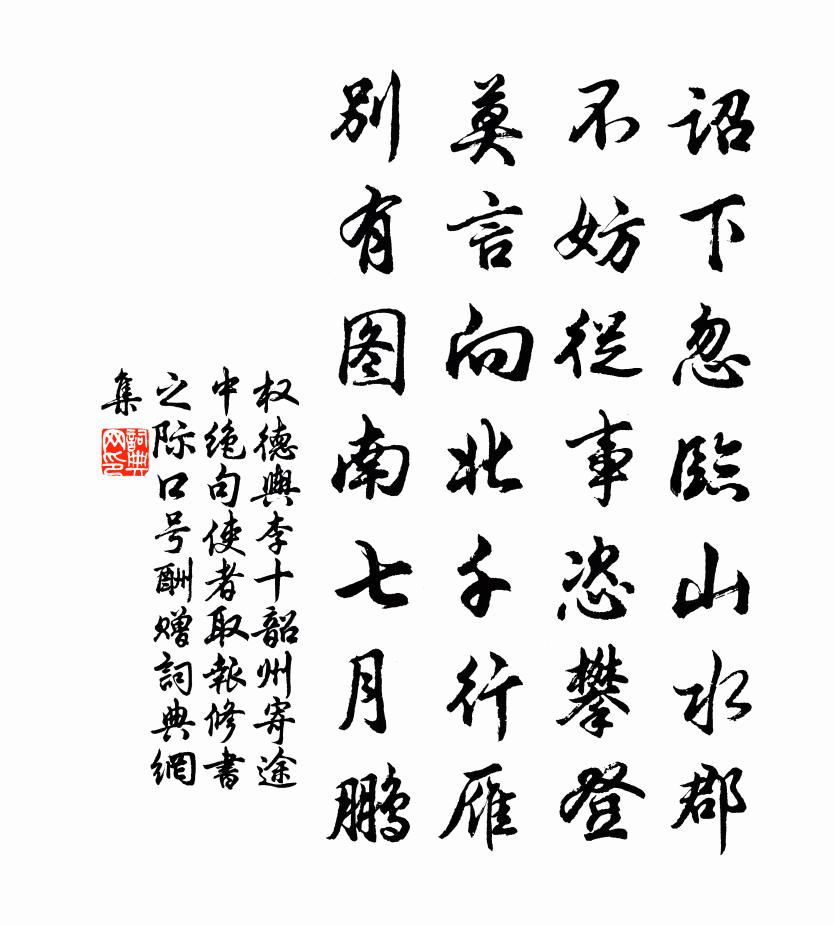 诏下忽臨山水郡
不妨從事恣攀登
莫言向北千行雁
别有图南七月鹏
权德輿李十韶州寄途
中绝句使者取報修書
之际口号酬赠詞典網
集
詞典网印